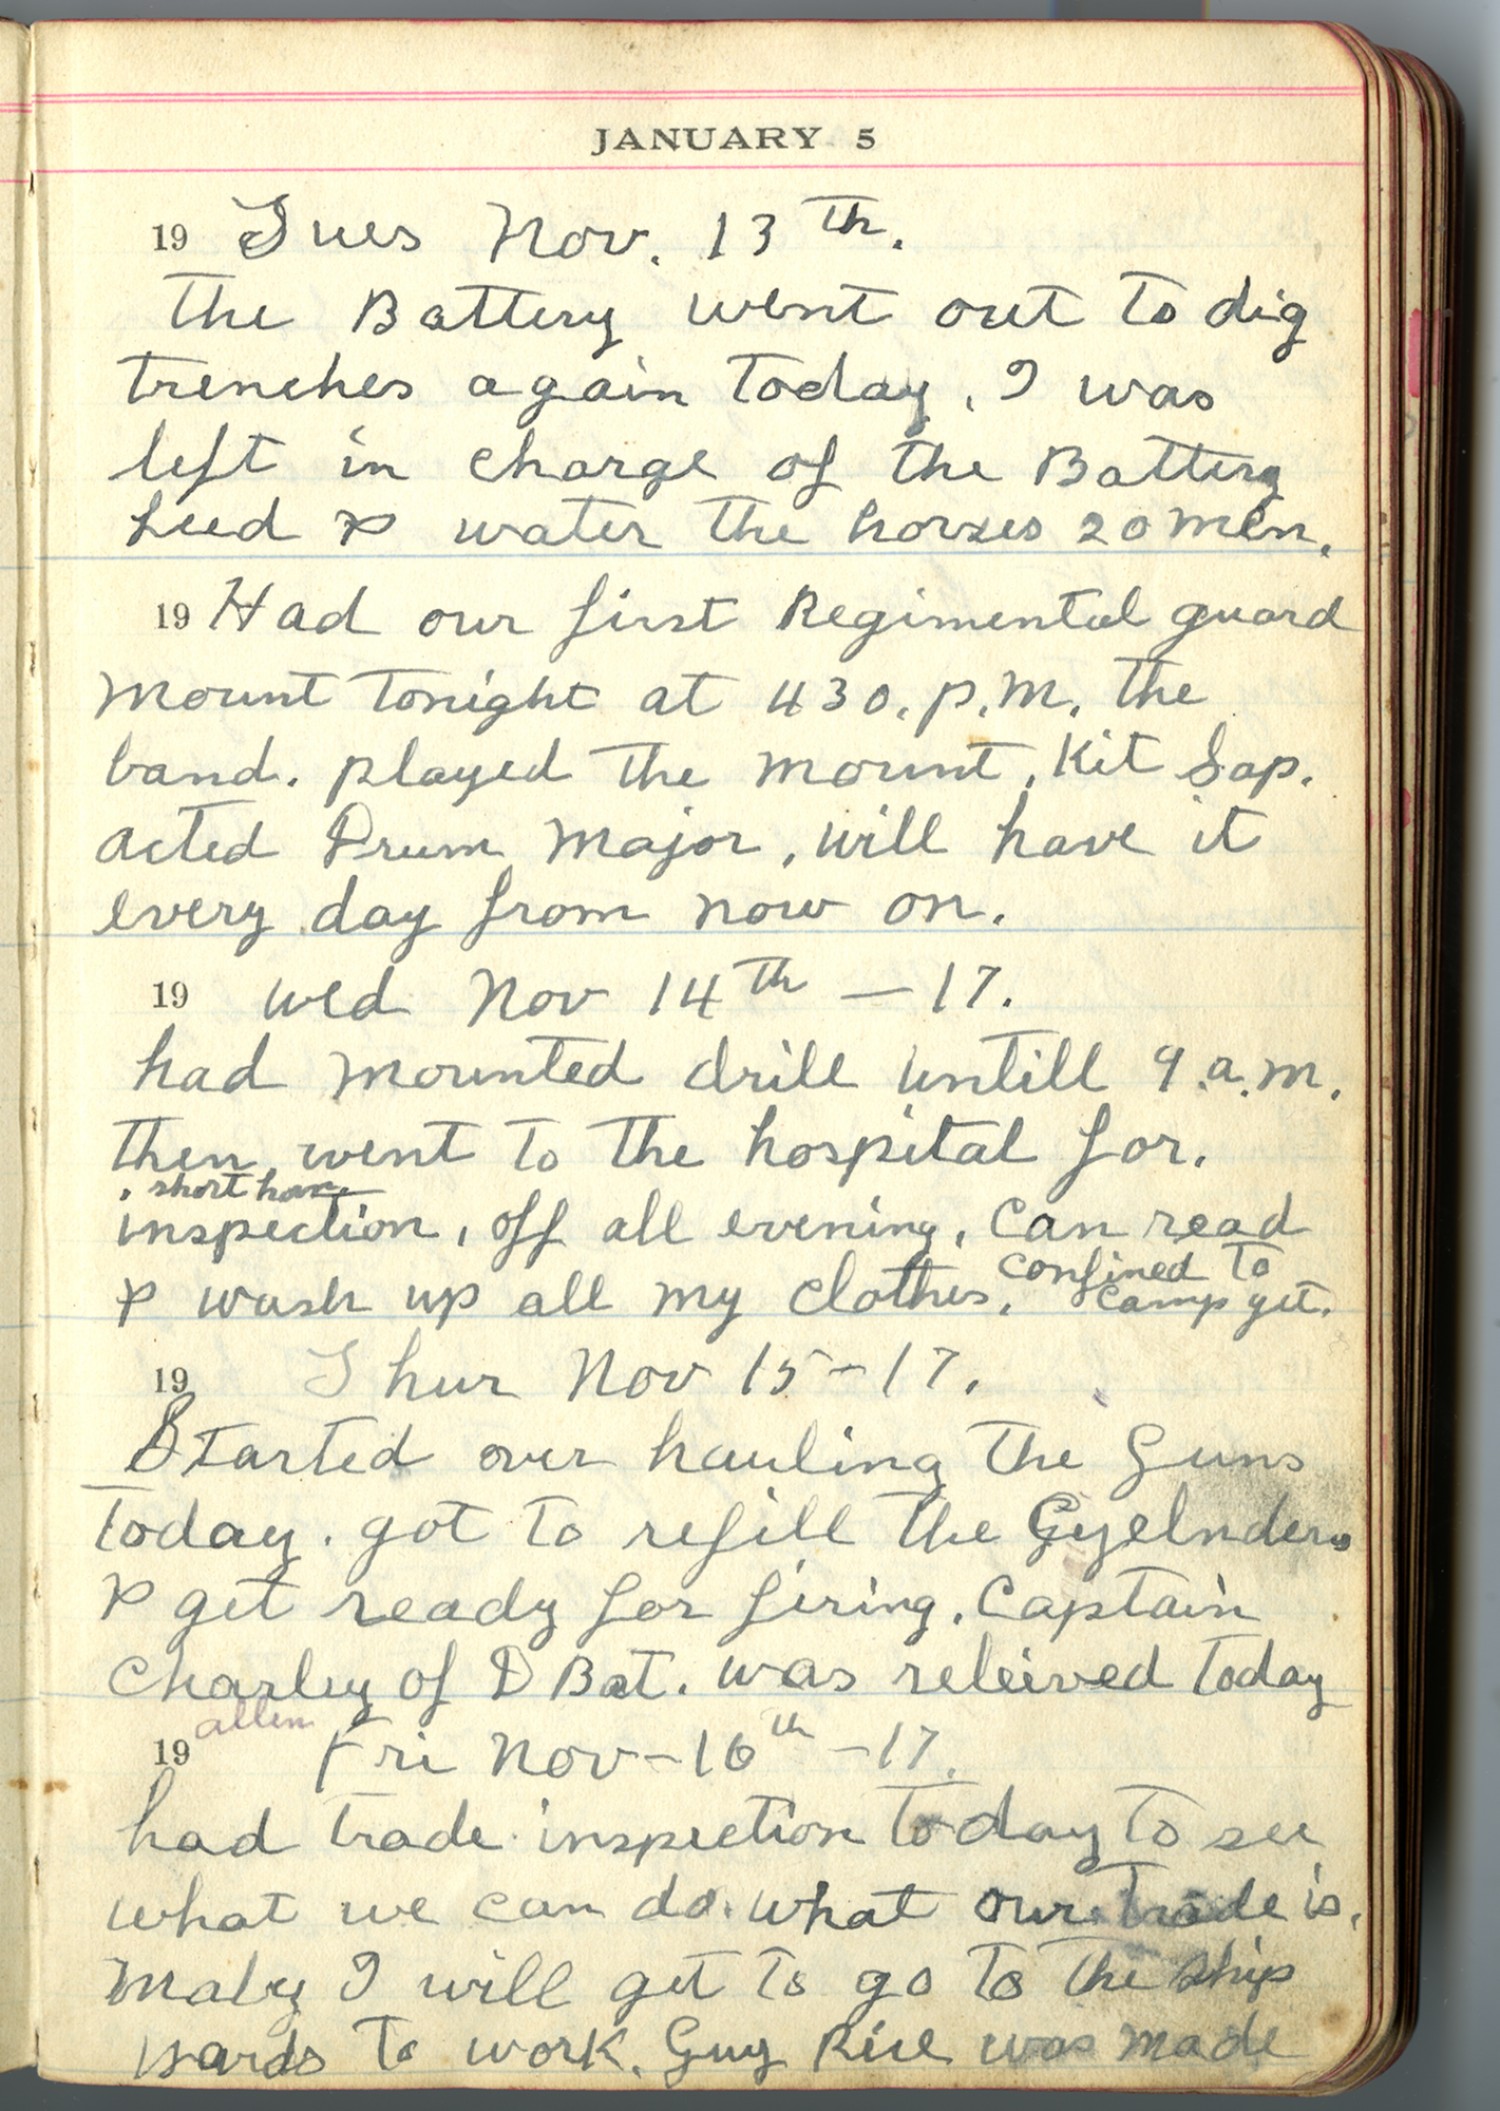 JANUARY 5
19 Tues Nov. 13th.
the Battery went out to dig
trenches again today, I was
left in charge of the Battery
feed & water the horses 20 men.
19 Had our first Regimental guard
mount tonight at 430. P.M. the
band. played the mount, Kit Sap.
acted Drum Major, will have it
every day from now on.
19 Wed Nov 14th — 17.
had mounted drill untill 9 a.m.
then, went to the hospital for.
short
inspection, off all evening, can read
& wash up all my clothes, confined to
camp yet.
19 Thur Nov 15-17.
Started over hauling the Guns
today. got to refill the
& get ready for firing. Captain
Charley of D Bat. was releived today
allen
19 Fri Nov-16th-17.
had trade inspection today to see
what we can do. what our trade is.
Maby I will get to go to the ship
yards to work. Guy Rice was made